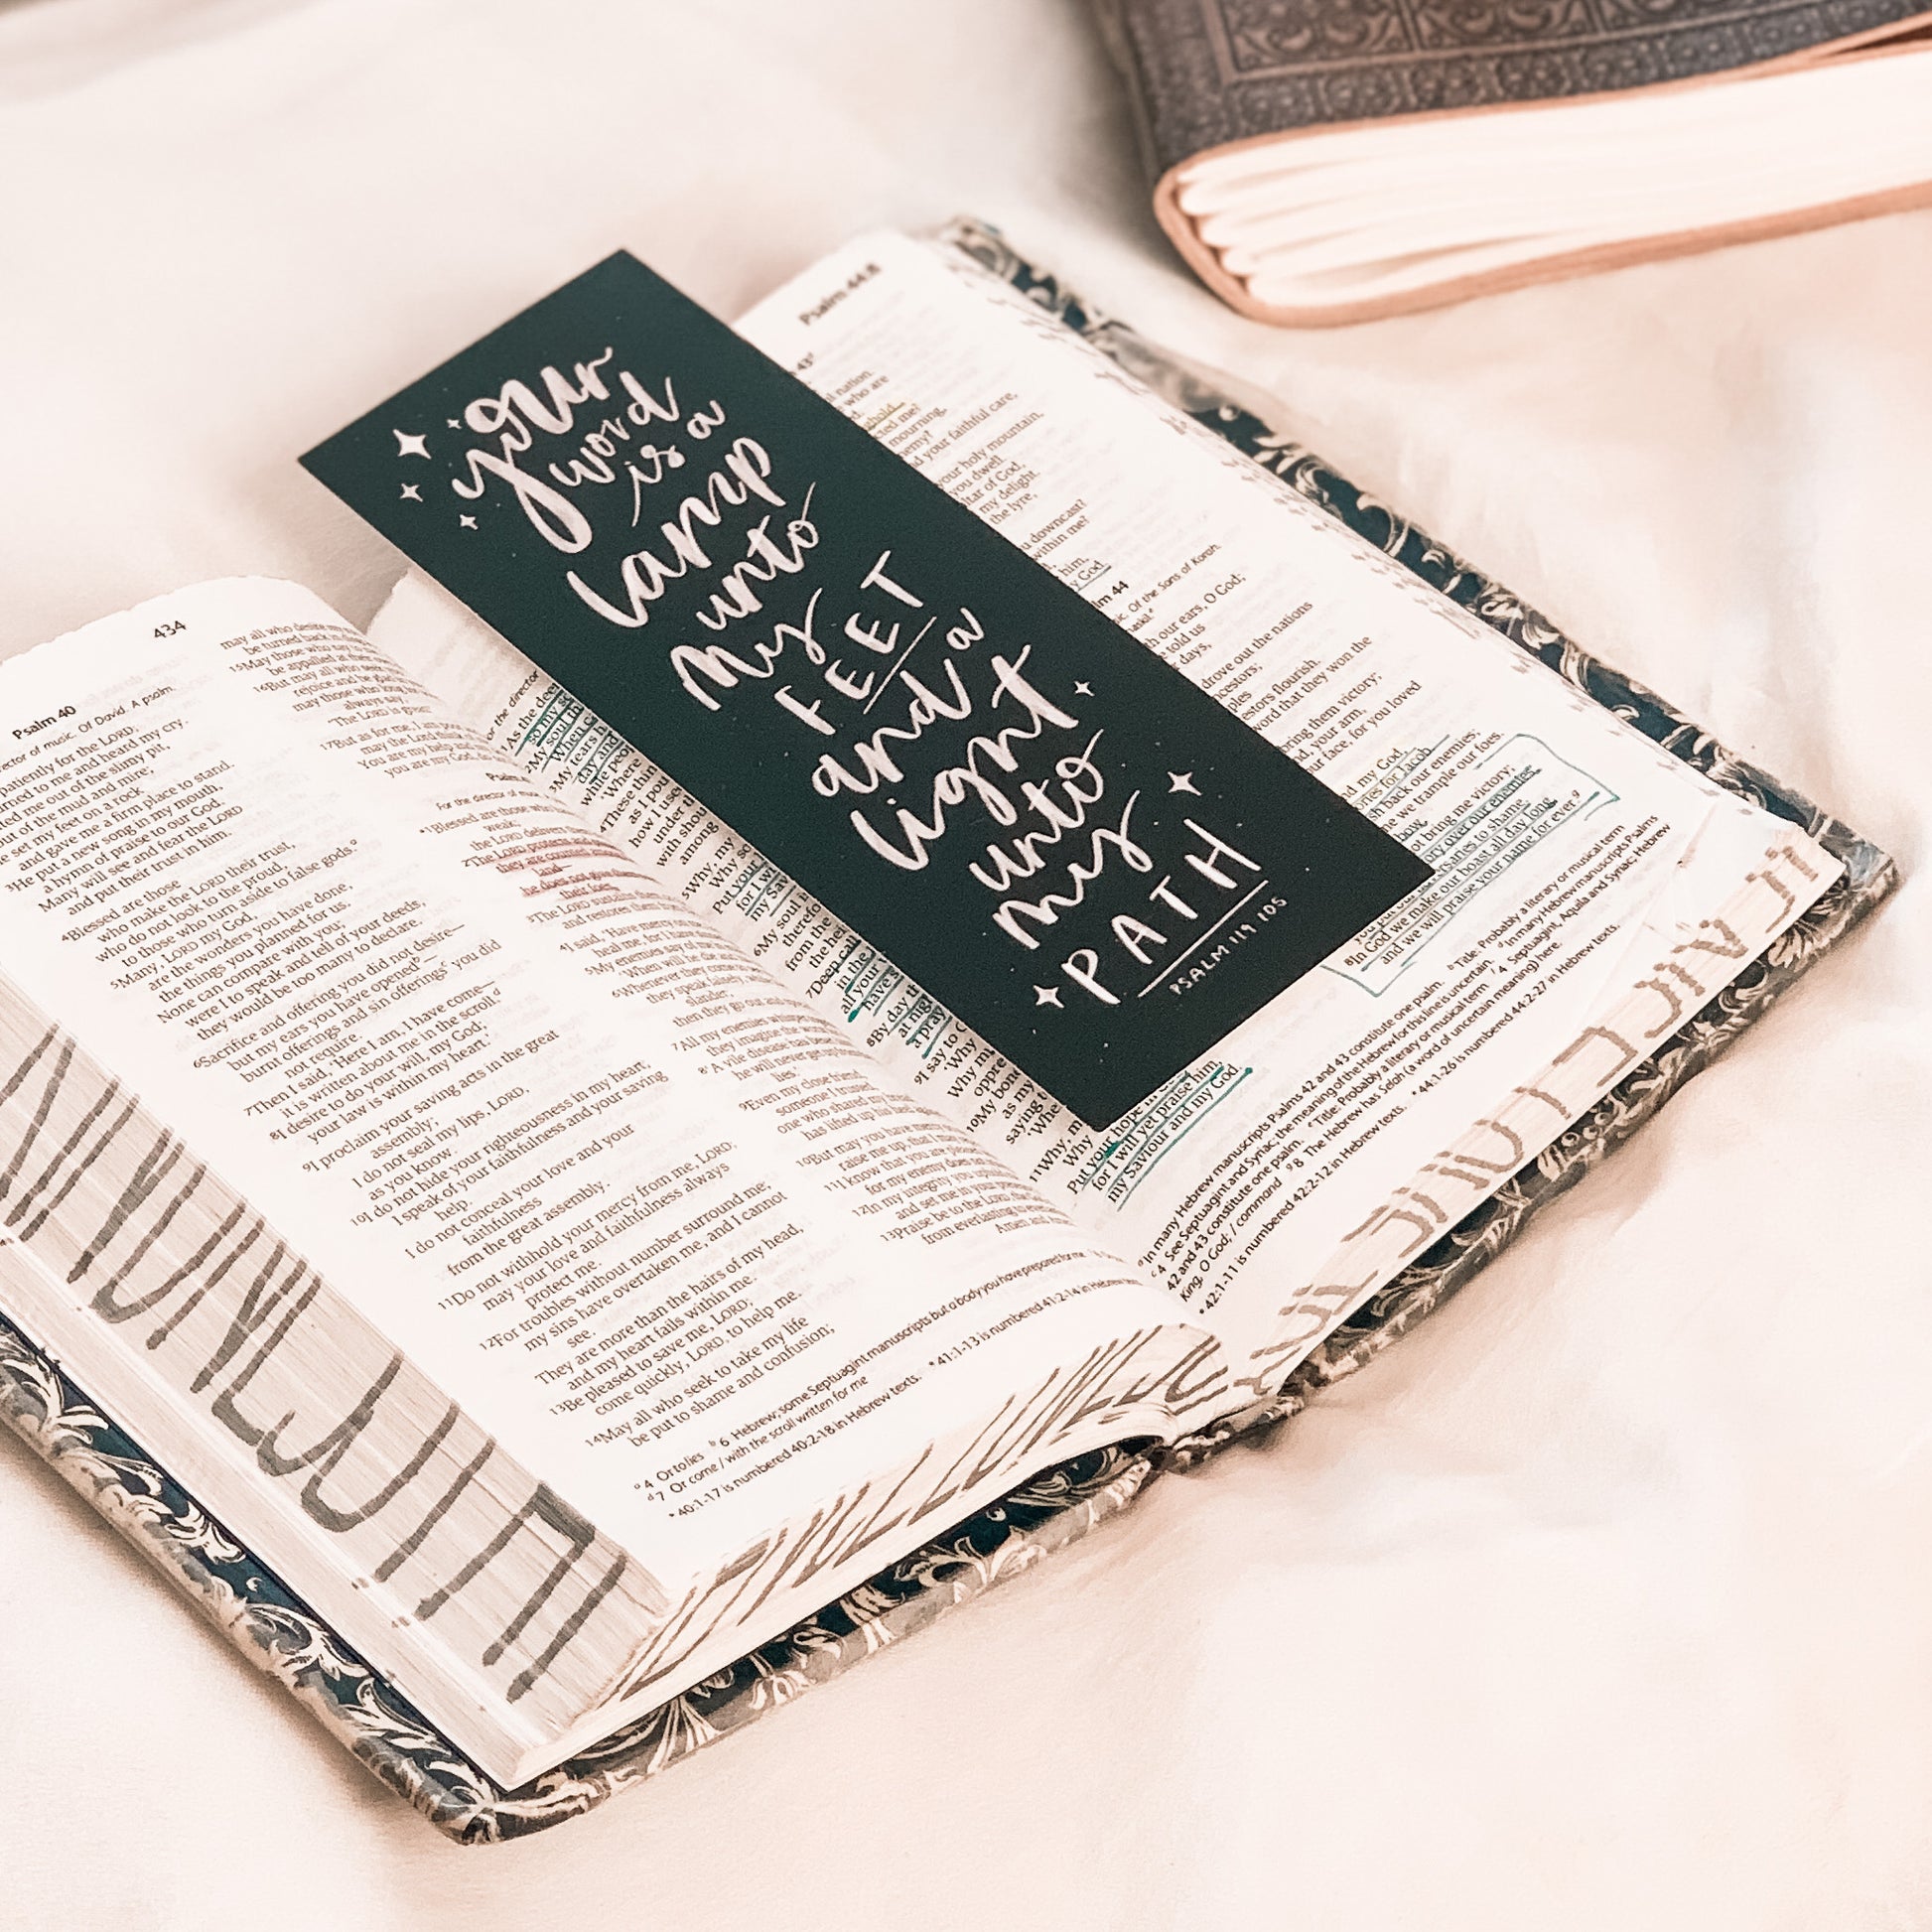 your
word
is a
lamp
unto
my
FEET
and a
light
unto
my
PATH
PSALM 119:105
434
Psalm 40
director of music. Of David. A psalm.
patiently for the LORD;
turned to me and heard my cry.
me out of the slimy pit,
out of the mud and mire;
set my feet on a rock
and gave me a firm place to stand.
³He put a new song in my mouth,
a hymn of praise to our God.
Many will see and fear the LORD
and put their trust in him.
⁴Blessed are those
who make the LORD their trust,
who do not look to the proud,
to those who turn aside to false gods.ᵃ
⁵Many, LORD my God,
are the wonders you have done,
the things you planned for us.
None can compare with you;
were I to speak and tell of your deeds,
they would be too many to declare.
⁶Sacrifice and offering you did not desire—
but my ears you have openedᵇ—
burnt offerings and sin offeringsᶜ you did
not require.
⁷Then I said, 'Here I am, I have come—
it is written about me in the scroll.ᵈ
⁸I desire to do your will, my God;
your law is within my heart.'
⁹I proclaim your saving acts in the great
assembly;
I do not seal my lips, LORD,
as you know.
¹⁰I do not hide your righteousness in my heart;
I speak of your faithfulness and your saving
help.
I do not conceal your love and your
faithfulness
from the great assembly.
¹¹Do not withhold your mercy from me, LORD;
may your love and faithfulness always
protect me.
¹²For troubles without number surround me;
my sins have overtaken me, and I cannot
see.
They are more than the hairs of my head,
and my heart fails within me.
¹³Be pleased to save me, LORD;
come quickly, LORD, to help me.
¹⁴May all who seek to take my life
be put to shame and confusion;
may all who desire
be turned back in
¹⁵May those who say to
be appalled at their
¹⁶But may all who seek
rejoice and be glad
may those who long for
always say,
'The LORD is great!'
¹⁷But as for me, I am poor
may the Lord think
You are my help and
you are my God,
For the director of music.
¹Blessed are those who
weak;
the LORD delivers
²The LORD protects and
they are counted among
land—
he does not give
their foes.
³The LORD sustains them
and restores them
⁴I said, 'Have mercy
heal me, for I have
⁵My enemies say of me
'When will he die and
⁶Whenever they come
they speak falsely,
slander;
then they go out and
⁷All my enemies
they imagine the worst
⁸'A vile disease has
he will never get up
lies.'
⁹Even my close friend,
someone I trusted,
one who shared my bread,
has lifted up his heel
¹⁰But may you have mercy
raise me up, that I may
¹¹I know that you are pleased
for my enemy does not
¹²In my integrity you uphold
and set me in your presence
¹³Praise be to the LORD, the
from everlasting to
Amen and
ᵃ4 Or to lies ᵇ6 Hebrew; some Septuagint manuscripts but a body you have prepared for me
ᵈ7 Or come / with the scroll written for me
*40:1-17 is numbered 40:2-18 in Hebrew texts. *41:1-13 is numbered 41:2-14 in Hebrew texts.
For the director
¹As the deer
so my soul
²My soul
When can
³My tears
day and
while people
'Where
⁴These things
as I pour
how I used
under the
with shouts
among
⁵Why, my
Why so
Put your
for I will
my Saviour
⁶My soul is
therefore
from the
the heights
⁷Deep calls
in the
all your
have
⁸By day the
at night
a prayer
⁹I say to God
'Why
Why must
oppressed
¹⁰My bones
as my
saying to
'Where
¹¹Why, my
Why
Put your hope in
for I will yet praise him,
my Saviour and my God.
Psalm 44:8
nation.
who are
mourning,
enemy?
and your faithful care,
your holy mountain,
you dwell.
altar of God,
my delight.
the lyre,
downcast?
within me?
him,
my God.
Psalm 44
music. Of the Sons of Korah.
our ears, O God;
told us
days,
drove out the nations
ancestors;
peoples
ancestors flourish.
sword that they won the
bring them victory;
hand, your arm,
your face, for you loved
and my God,
victories for Jacob.
push back our enemies;
name we trample our foes.
bow,
not bring me victory;
victory over our enemies,
adversaries to shame.
⁸In God we make our boast all day long,
and we will praise your name for ever.ᵍ
ᵃIn many Hebrew manuscripts Psalms 42 and 43 constitute one psalm. ᵇTitle: Probably a literary or musical term
ᶜ4 See Septuagint and Syriac; the meaning of the Hebrew for this line is uncertain. ᵈIn many Hebrew manuscripts Psalms
42 and 43 constitute one psalm. ᵉTitle: Probably a literary or musical term ᶠ4 Septuagint, Aquila and Syriac; Hebrew
King, O God; / command ᵍ8 The Hebrew has Selah (a word of uncertain meaning) here.
*42:1-11 is numbered 42:2-12 in Hebrew texts. *44:1-26 is numbered 44:2-27 in Hebrew texts.